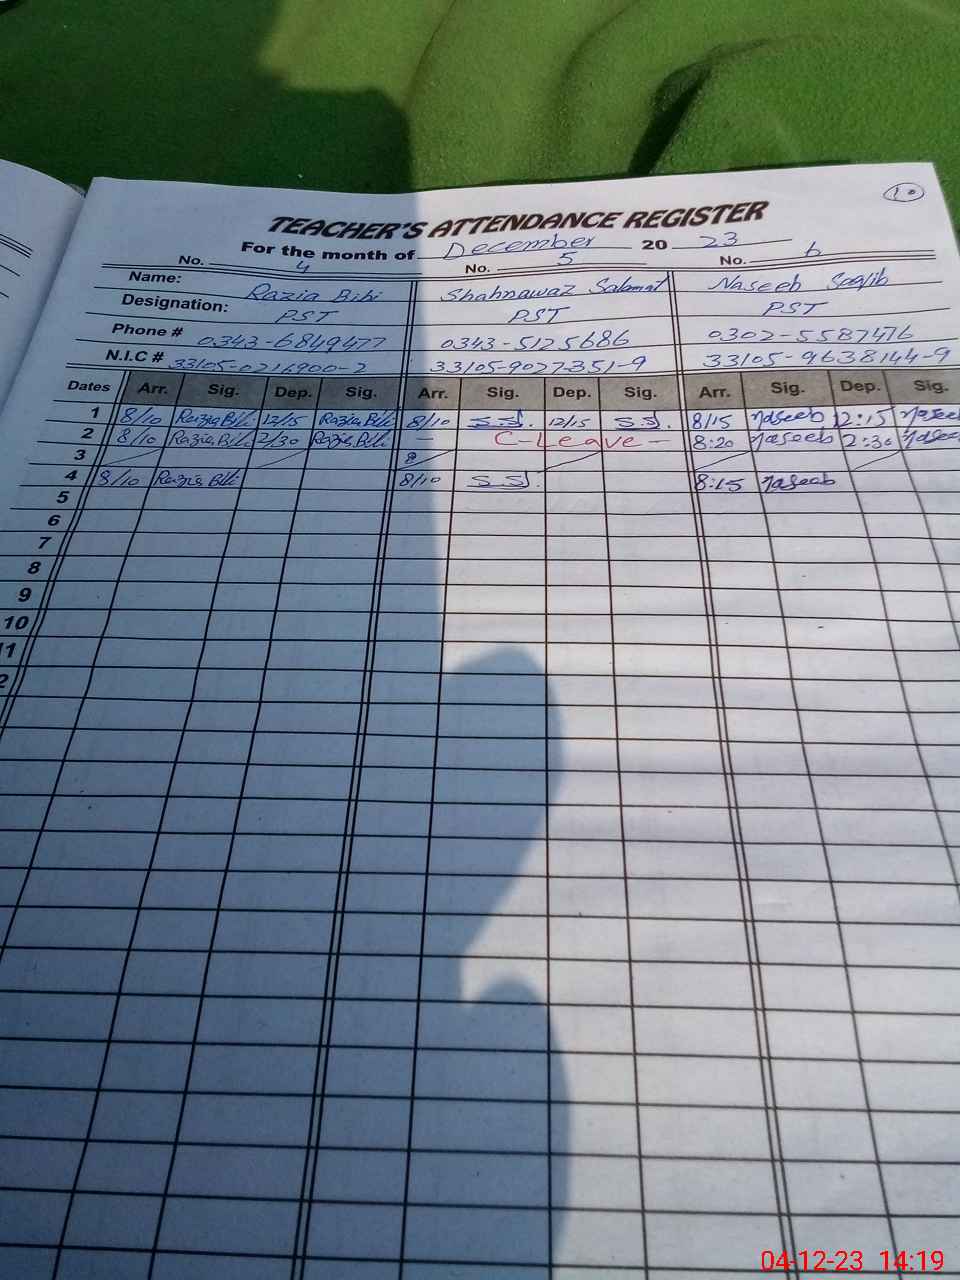 10
TEACHER'S ATTENDANCE REGISTER
For the month of December 20 23
No. 4 No. 5 No. 6
Name: Razia Bibi Shahnawaz Salamat Naseeb Saqib
Designation: PST PST PST
Phone # 0343-6849477 0343-5125686 0302-5587476
N.I.C # 33105-0216900-2 33105-9027351-9 33105-9638144-9
Dates Arr. Sig. Dep. Sig. Arr. Sig. Dep. Sig. Arr. Sig. Dep. Sig.
1 8/10 Razia Bibi 12/15 Razia Bibi 8/10 S.S. 12/15 S.S. 8/15 naseeb 12:15 naseeb
2 8/10 Razia Bibi 2/30 Razia Bibi – C-Leave – 8:20 naseeb 2:30 naseeb
3 8
4 8/10 Razia Bibi 8/10 S.S. 8:15 naseeb
5
6
7
8
9
10
11
2
04-12-23 14:19